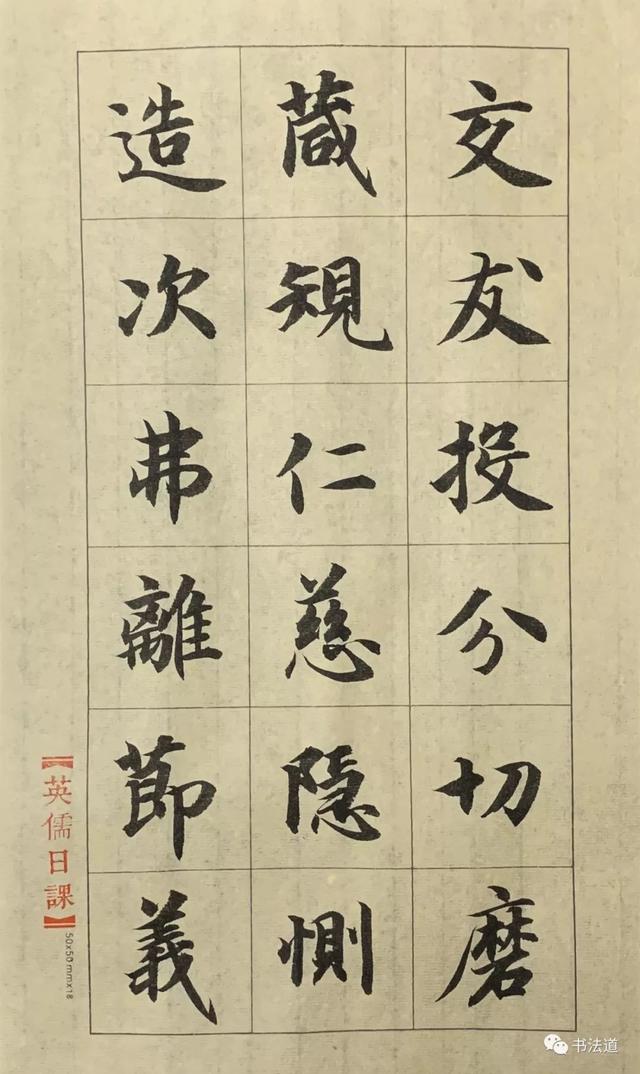 交友投分切磨
葴規仁慈隠惻
造次弗離莭義
【英儒日課】
50x50mmx18
书法道